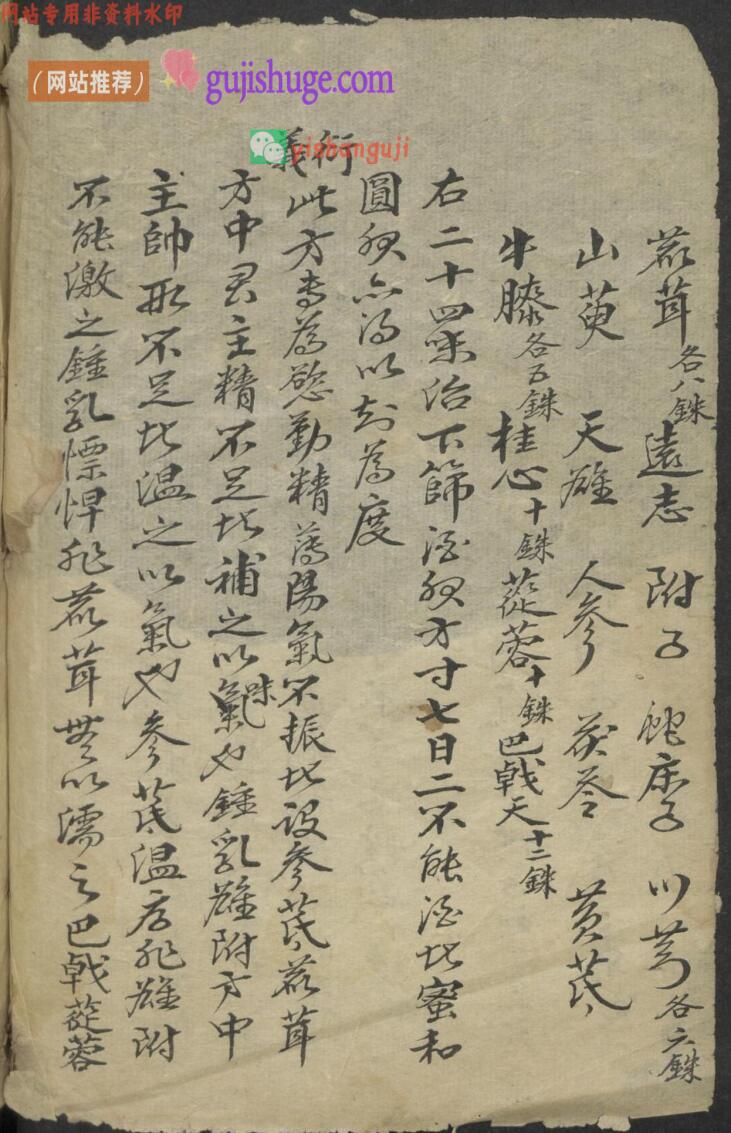 网站专用非资料水印
(网站推荐)
gujishuge.com
yishanguji
鹿茸各八銖遠志 附子 蛇床子 川芎各六銖
山萸 天雄 人參 茯苓 黃芪
牛膝各五銖桂心十銖蓯蓉十銖巴戟天十二銖
右二十四味治下篩酒服方寸七日二不能酒者蜜和
圓服亦得以知為度
衍義
此方專為慾勤精薄陽氣不振者設參芪鹿茸
方中君主精不足者補之以氣味也鍾乳雄附方中
主帥形不足者溫之以氣也參芪溫存非雄附
不能激之鍾乳慓悍非鹿茸無以濡之巴戟蓯蓉